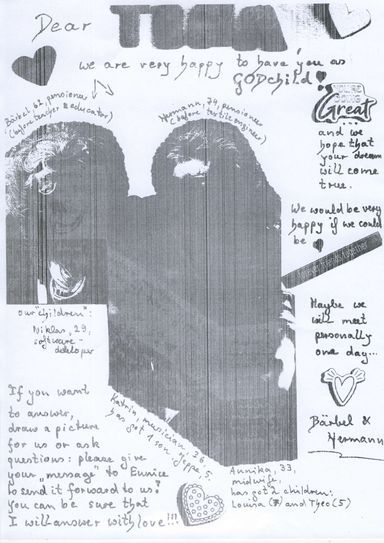 Dear TONA
we are very happy to have you as
GODchild!
Bärbel 62, pensioner
(before teacher & educator)
Hermann, 74, pensioner
(before textile engineer)
Great...
... and we
hope that
your dream
will come
true.
We would be very
happy if we could
be
forever friends together
our "children":
Niklas, 29,
software-
developer
Maybe we
will meet
personally
one day...
Bärbel &
Hermann
If you want
to answer,
draw a picture
for us or ask
questions: please give
your "message" to Eunice
to send it forward to us!
You can be sure that
I will answer with love!!!
Katrin, musician, 36,
has got 1 son: Jeppe, 5
Annika, 33,
midwife,
has got 2 children:
Louisa (7) and Theo (5)